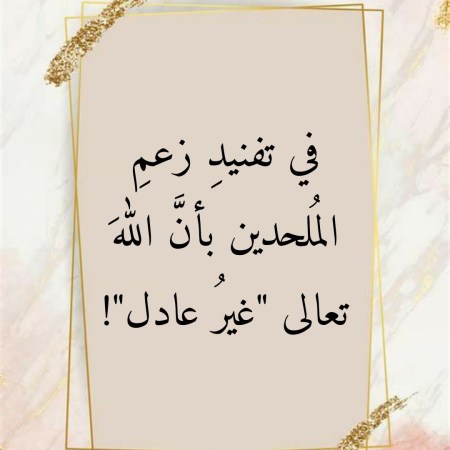 في تفنيدِ زعمِ
المُلحدين بأنَّ اللهَ
تعالى "غيرُ عادل"!